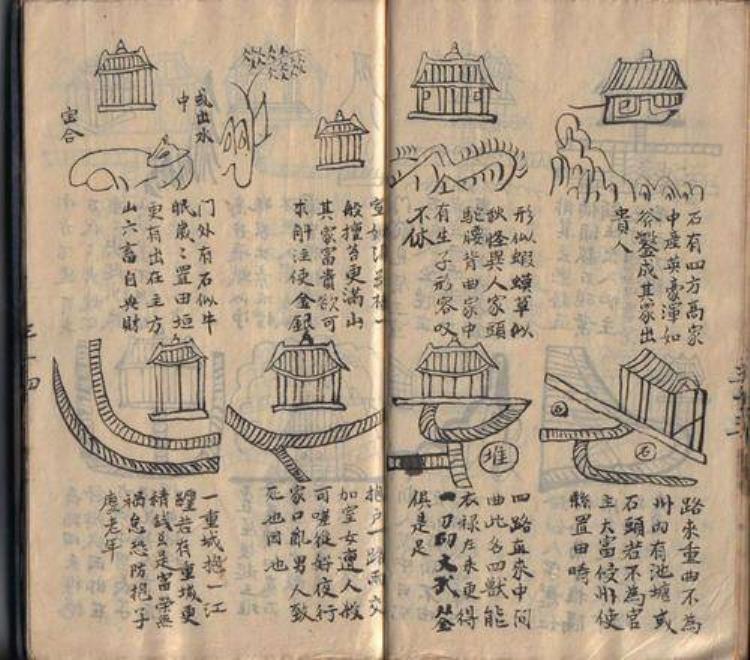 石有四方高家
中產英豪渾如
谷鑿成其家出
貴人
形似蝦蟆草似
秋怪異人家頭
駝腰背曲家中
有生子形容叹
不休
般擅答更滿山
其家富貴欲可
求肝注使金銀
或出水
中
宝合
门外有石似牛
眠歲〻置田垣
更有出在主方
山六畜自央財
路來重曲不為
州内有池塘或
石頭若不為官
主大富佼州使
縣置田畴
石
四路血來中间
曲此名四獸能
衣禄左來更得
一刀的文武
俱是足
堆
抱户一路兩交
加室女遭人般
可嗟從好夜行
家口亂男人致
死也因池
一重城抱一江
若有重城更
積錢旦是富榮無
禍危恐防抱子
虛老年
三十四